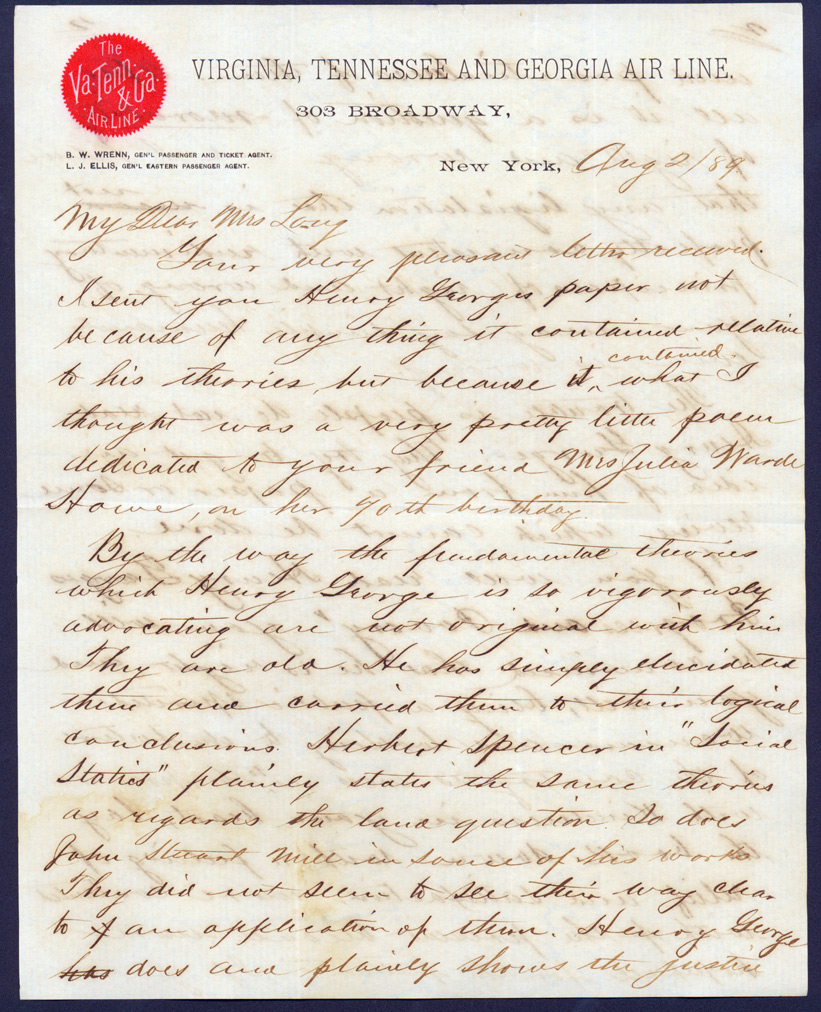 The
Va. Tenn.
& Ga.
AIR LINE.
VIRGINIA, TENNESSEE AND GEORGIA AIR LINE.
303 BROADWAY,
B. W. WRENN, GEN'L PASSENGER AND TICKET AGENT.
L. J. ELLIS, GEN'L EASTERN PASSENGER AGENT.
New York, Aug 2/89
My Dear Mrs Long
Your very pleasant letter received.
I sent you Henry Georges paper not
because of any thing it contained relative
to his theories, but because it, contained what I
thought was a very pretty little poem
dedicated to your friend Mrs Julia Warde
Howe, on her 70th birthday.
By the way the fundamental theories
which Henry George is so vigorously
advocating are not original with him
They are old. He has simply elucidated
them and carried them to their logical
conclusions. Herbert Spencer in "Social
Statics" plainly states the same theories
as regards the land question. So does
John Stuart Mill in some of his works
They did not seem to see their way clear
to an application of them. Henry George
has does and plainly shows the justice